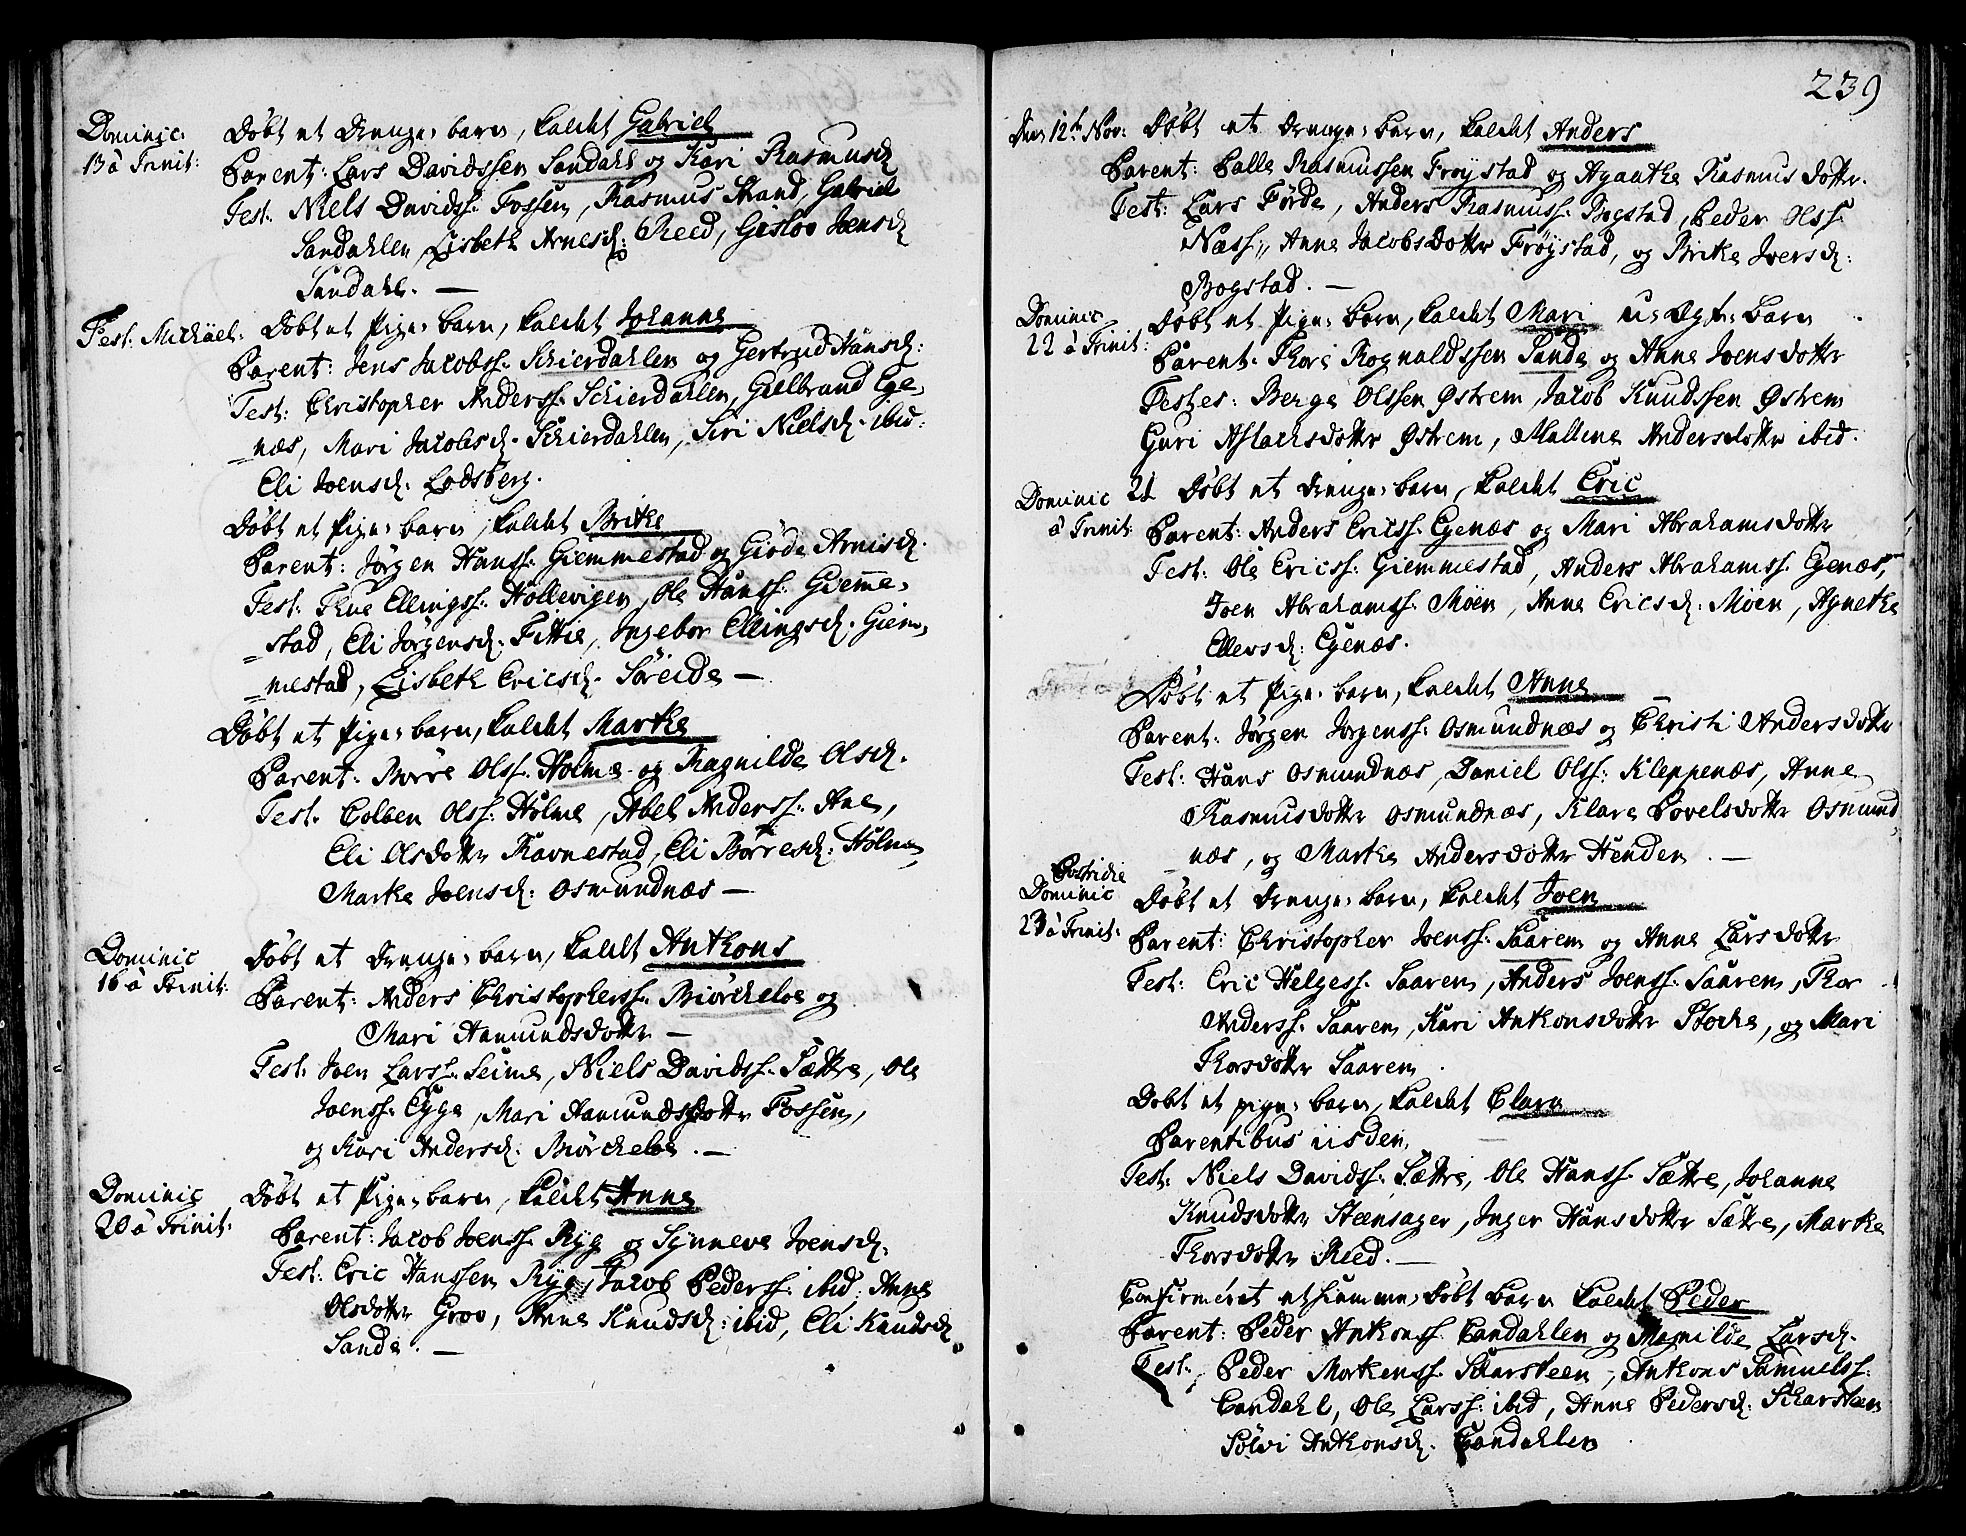 Dominic: Døbt et Drenge-barn, kaldet Gabriel
13 à Trinit: Parent: Lars Davidssen Sandahl og Kari Rasmusd.
Test: Niels Davidss. Fossen, Rasmus Strand, Gabriel
Sandahlen, Lisbeth Arnesd: Reed, Gislov Joensd
Sandahl. —
Fest: Michäel: Døbt et Pige-barn, kaldet Johanne
Parent: Jens Jacobss. Schierdahlen og Gertrud Hansd:
Test: Christopher Anderss. Schierdahlen, Gulbrand Ege-
næs, Mari Jacobsd. Schierdahlen, Siri Nielsd. ibid:
Eli Joensd. Lodsberg.
Døbt et Pige-barn, kaldet Brithe
Parent: Jørgen Hanss. Giemmestad og Giøde Arnisd.
Test: Thue Ellingss. Hollevigen, Ole Hanss. Giemme-
stad, Eli Jørgensd. Fittie, Ingebor Ellingsd. Giem-
mestad, Lisbeth Ericsd. Søreide —
Døbt et Pige-barn, kaldet Marthe
Parent: Børre Olss. Holme og Ragnilde Olsd.
Test. Colben Olss. Holme, Abel Anderss. Ane,
Eli Olsdotter Ravnestad, Eli Børresd. Holme
Marthe Joensd: Osmundnæs —
Dominic Døbt et Drenge-barn, kaldet Anthons
16 à Trinit: Parent: Anders Christopherss. Biørcheloe og
Mari Aamundsdotter —
Test: Joen Larss. Seime, Niels Davidss. Sættre, Ole
Joenss. Egge, Mari Aamundsdotter Fossen,
og Kari Andersd. Biørcheloe. —
Dominic Døbt et Pige-barn, kaldet Anne
20 à Trinit: Parent: Jacob Joenss. Ryg og Synneve Joensd.
Test: Eric Hanssen Ryg, Jacob Pederss. ibid: Anne
Olsdotter Grov, Anne Knudsd: ibid, Eli Knudsd
Sande. —
239
Den 12te Nov: Døbt et Drenge-barn, kaldet Anders
Parent: Palle Rasmussen Frøystad og Aganthe Rasmusdotter.
Test: Lars Förde, Anders Rasmuss. Bogstad, Peder Olss.
Næss, Anne Jacobsdotter Frøystad, og Brithe Joersd:
Bogstad. —
Dominic Døbt et Pige-barn, kaldet Mari u-Ægte-barn
22 à Trinit: Parent. Thore Rognaldssen Sande og Anne Joensdotter
Testes: Berge Olssen Østrem, Jacob Knudssen Østrem
Guri Aslachsdotter Østrem, Mallene Andersdotter ibid.
Dominic 21 Døbt et Drenge-barn, kaldet Eric
à Trinit: Parent: Anders Ericss. Egenæs og Mari Abrahamsdotter
Test: Ole Ericss. Giemmestad, Anders Abrahamss. Egenæs,
Joen Abrahamss. Moen, Anne Ericsd. Moen, Agnethe
Ellersd: Egenæs.
Døbt et Pige-barn, kaldet Anne
Parent: Jørgen Jørgenss. Osmundnæs og Christi Andersdotter
Test: Hans Osmundnæs, Daniel Olss: Kleppenæs, Anne
Rasmusdotter Osmundnæs, Klare Povelsdotter Osmund-
næs, og Marthe Andersdotter Henden. —
Postridie
Dominic Døbt et Drenge-barn, kaldet Joen
23 à Trinit: Parent: Christopher Joenss. Saaren og Anne Larsdotter
Test: Eric Helgess. Saaren, Anders Joenss. Saaren, Thor
Anderss. Saaren, Kari Anthonsdotter Stoche, og Mari
Thorsdotter Saaren.
Døbt et pige-barn, kaldet Clara
Parentibus iisden.
Test: Niels Davidss. Sættre, Ole Hanss. Sættre, Johanne
Knudsdotter Steensager, Inger Hansdotter Sættre, Marthe
Thorsdotter Reed. —
Confirmeret et hiemme-Døbt barn kaldet Peder
Parent: Peder Anthonss. Candahlen og Magnilde Larsd.
Test: Peder Mortenss. Skarsteen, Anthons Samuelss.
Candahl, Ole Larss: ibid, Anne Pedersd: Scharsteen
Sølvi Anthonsd. Candahlen